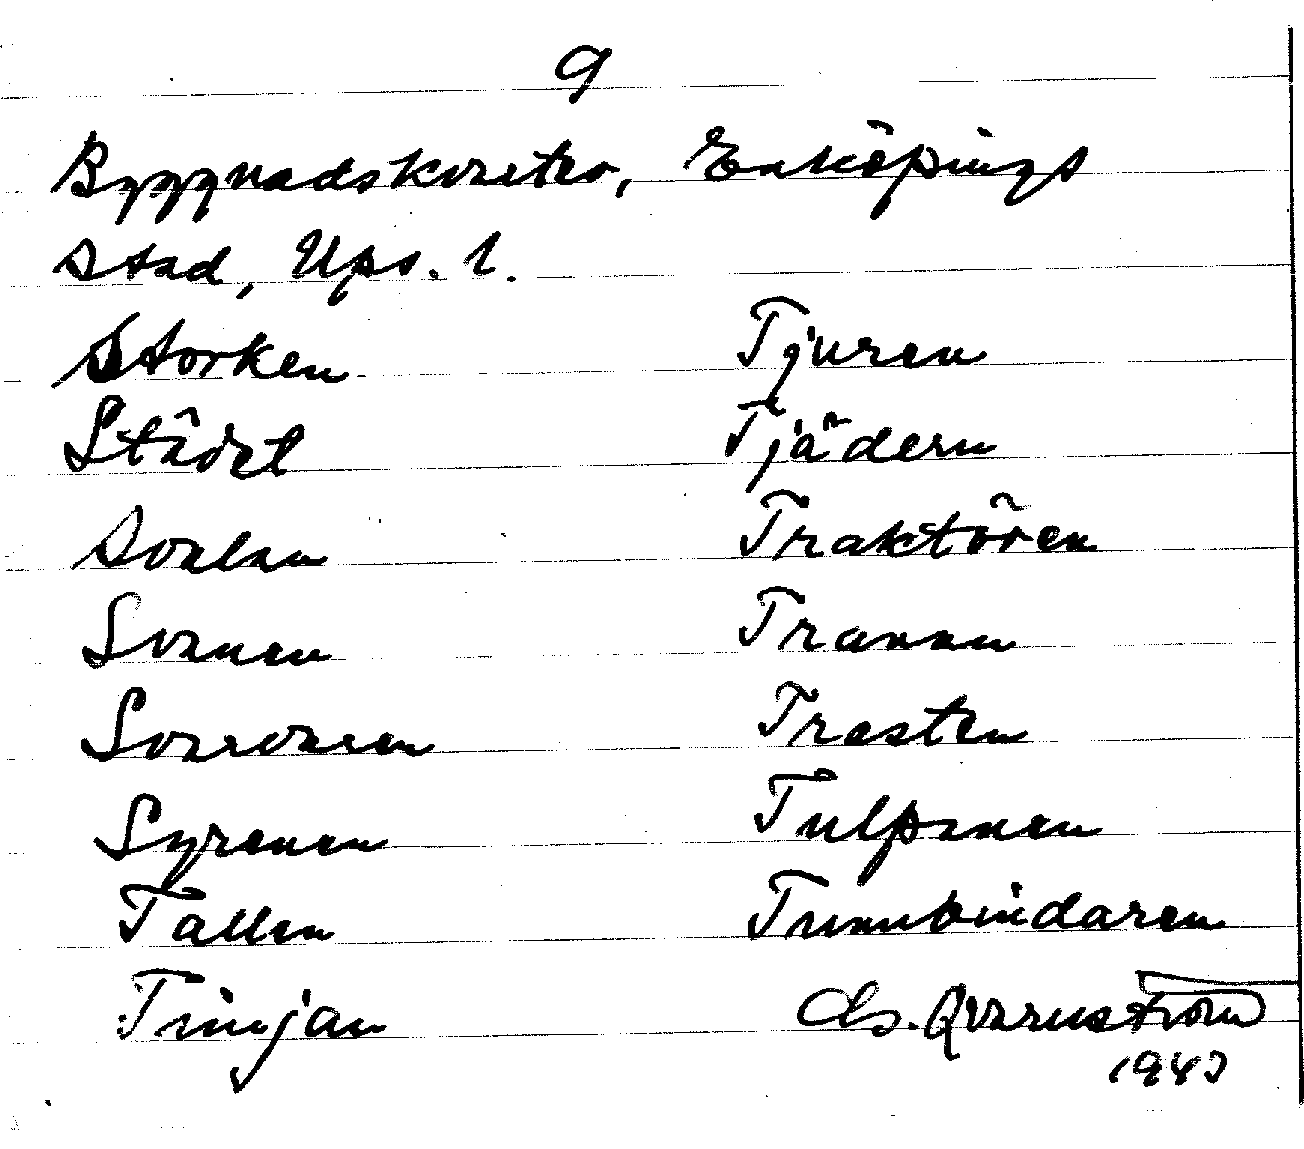 9
Byggnadskvarter, Enköpings
stad, Ups. l.
Storken
Städet
Svalan
Svanen
Svarvaren
Syrenen
Tallen
Timjan
Tjuren
Tjädern
Traktören
Tranan
Trasten
Tulpanen
Tunnbindaren
Qvarnström